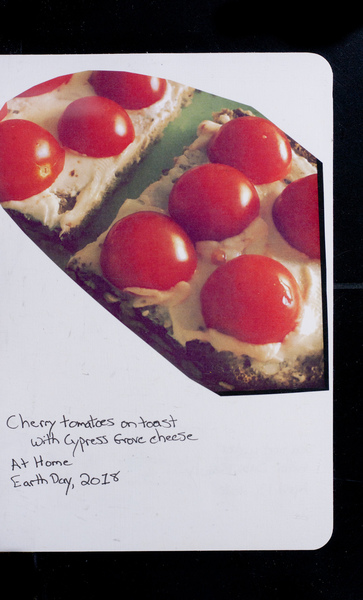 Cherry tomatoes on toast
with Cypress Grove cheese
At Home
Earth Day, 2018